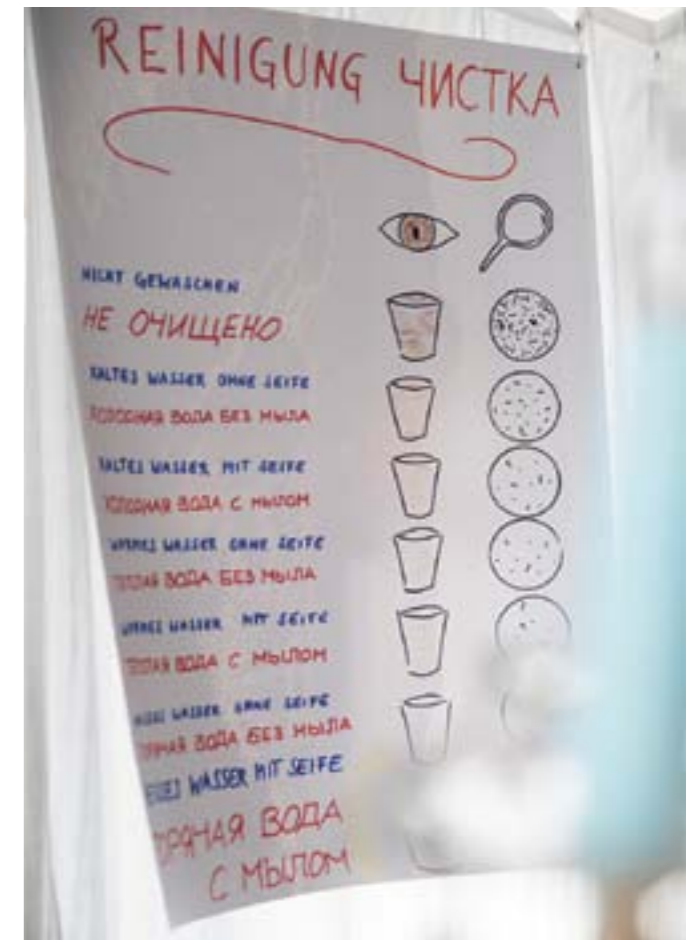 REINIGUNG ЧИСТКА
NICHT GEWASCHEN
НЕ ОЧИЩЕНО
KALTES WASSER OHNE SEIFE
ХОЛОДНАЯ ВОДА БЕЗ МЫЛА
KALTES WASSER MIT SEIFE
ХОЛОДНАЯ ВОДА С МЫЛОМ
WARMES WASSER OHNE SEIFE
ТЕПЛАЯ ВОДА БЕЗ МЫЛА
WARMES WASSER MIT SEIFE
ТЕПЛАЯ ВОДА С МЫЛОМ
WASSER OHNE SEIFE
ВОДА БЕЗ МЫЛА
WASSER MIT SEIFE
ВОДА
С МЫЛОМ